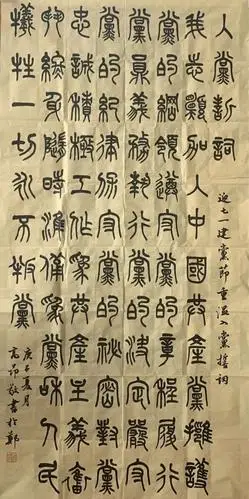 入黨誓詞
我志願加入中國共產黨擁護
黨的綱領遵守黨的章程履行
黨員義務執行黨的決定嚴守
黨的紀律保守黨的秘密對黨
忠誠積極工作為共產主義奮
鬥終身隨時準備為黨和人民
犧牲一切永不叛黨
迎七一建黨節重溫入黨誓詞
庚子夏月
敬書於鄭